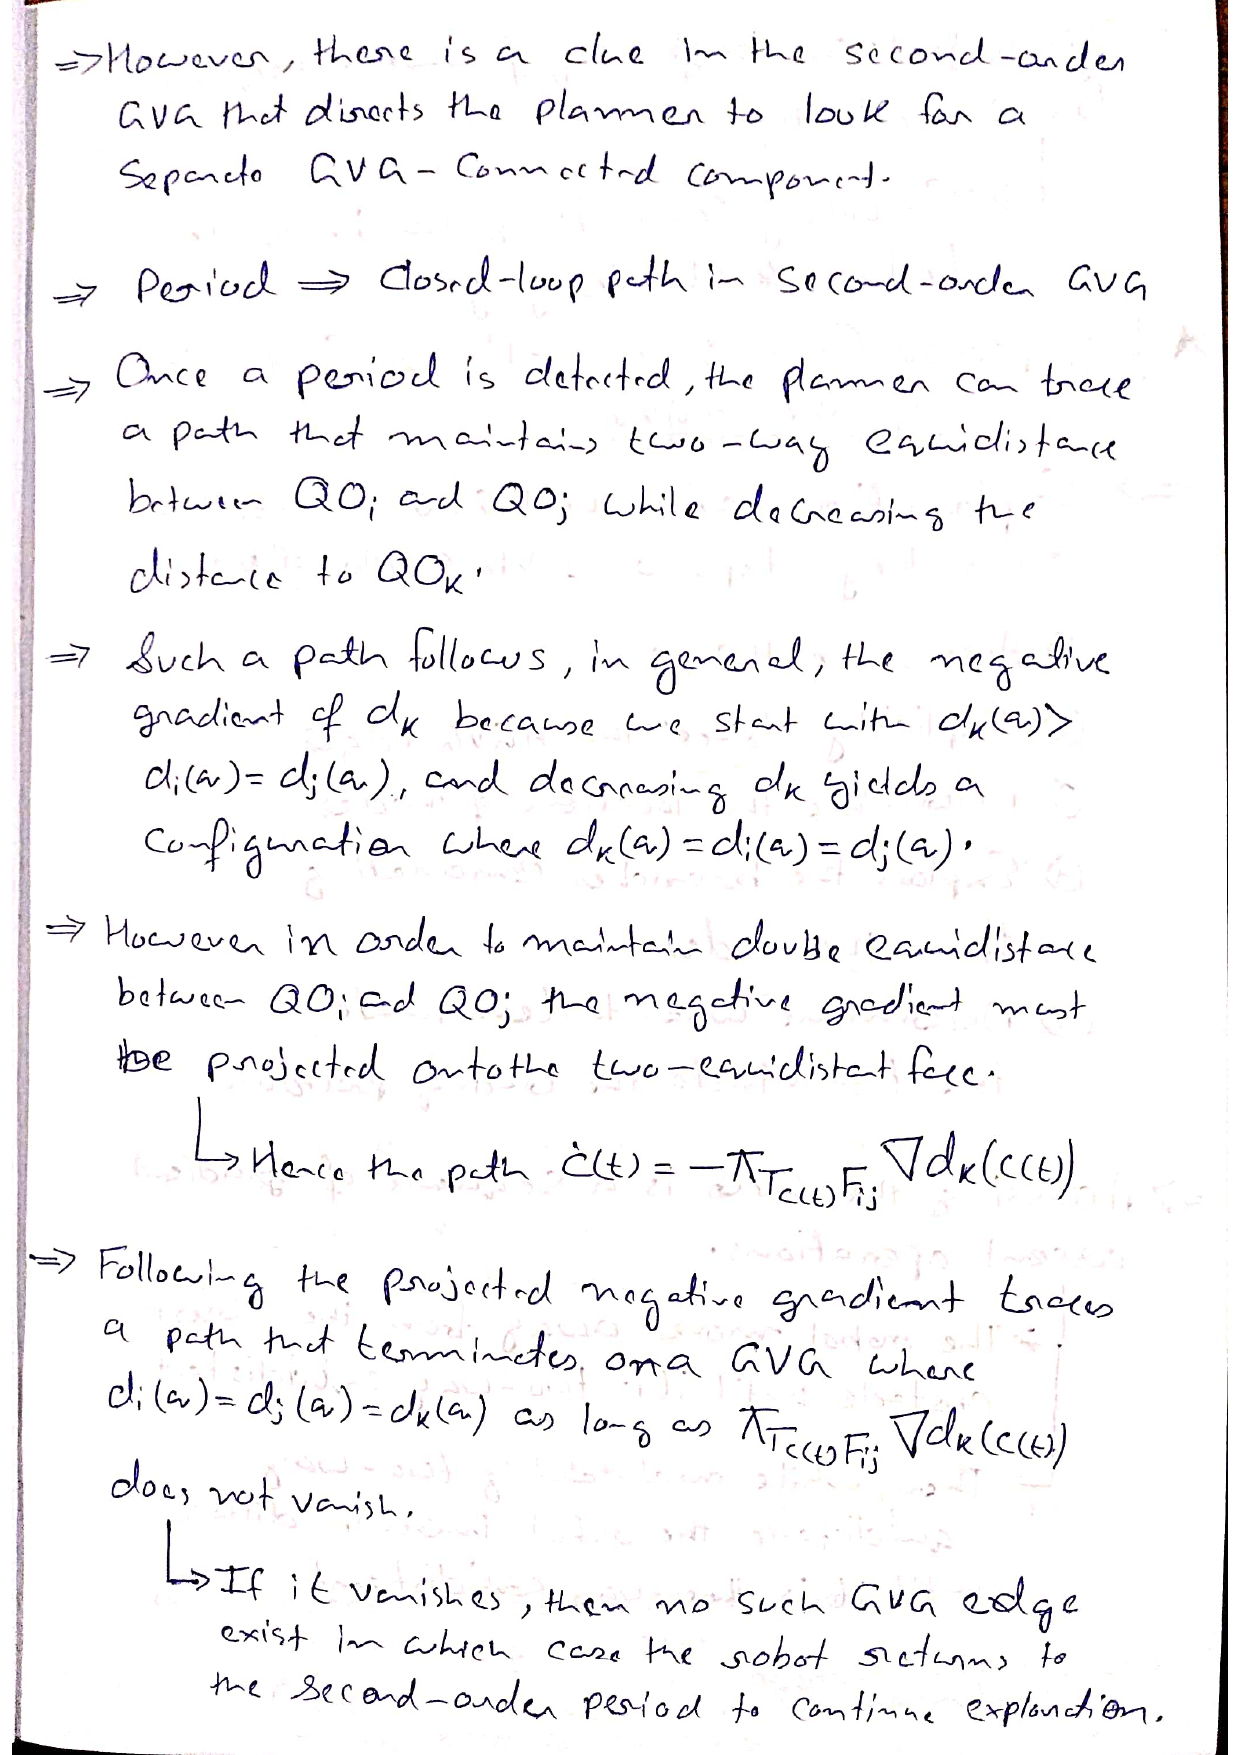 ⇒ However, there is a clue in the second-order
GVG that directs the planner to look for a
Separate GVG-Connected component.
⇒ Period ⇒ Closed-loop path in second-order GVG
⇒ Once a period is detected, the planner can trace
a path that maintains two-way equidistance
between QOi and QOj while decreasing the
distance to QOK.
⇒ Such a path follows, in general, the negative
gradient of dK because we start with dK(q)>
di(q)= dj(q), and decreasing dK yields a
Configuration where dK(q) = di(q) = dj(q).
⇒ However in order to maintain double equidistace
between QOi ad QOj the negative gradient must
be projected onto the two-equidistant face.
↳ Hence the path ċ(t) = -πTc(t)Fij ∇dK(c(t))
⇒ Following the projected negative gradient traces
a path that terminates on a GVG where
di(q)= dj(q)=dK(q) as long as πTc(t)Fij ∇dK(c(t))
does not vanish.
↳ If it vanishes, then no such GVG edge
exist in which case the robot returns to
the second-order period to continue exploration.